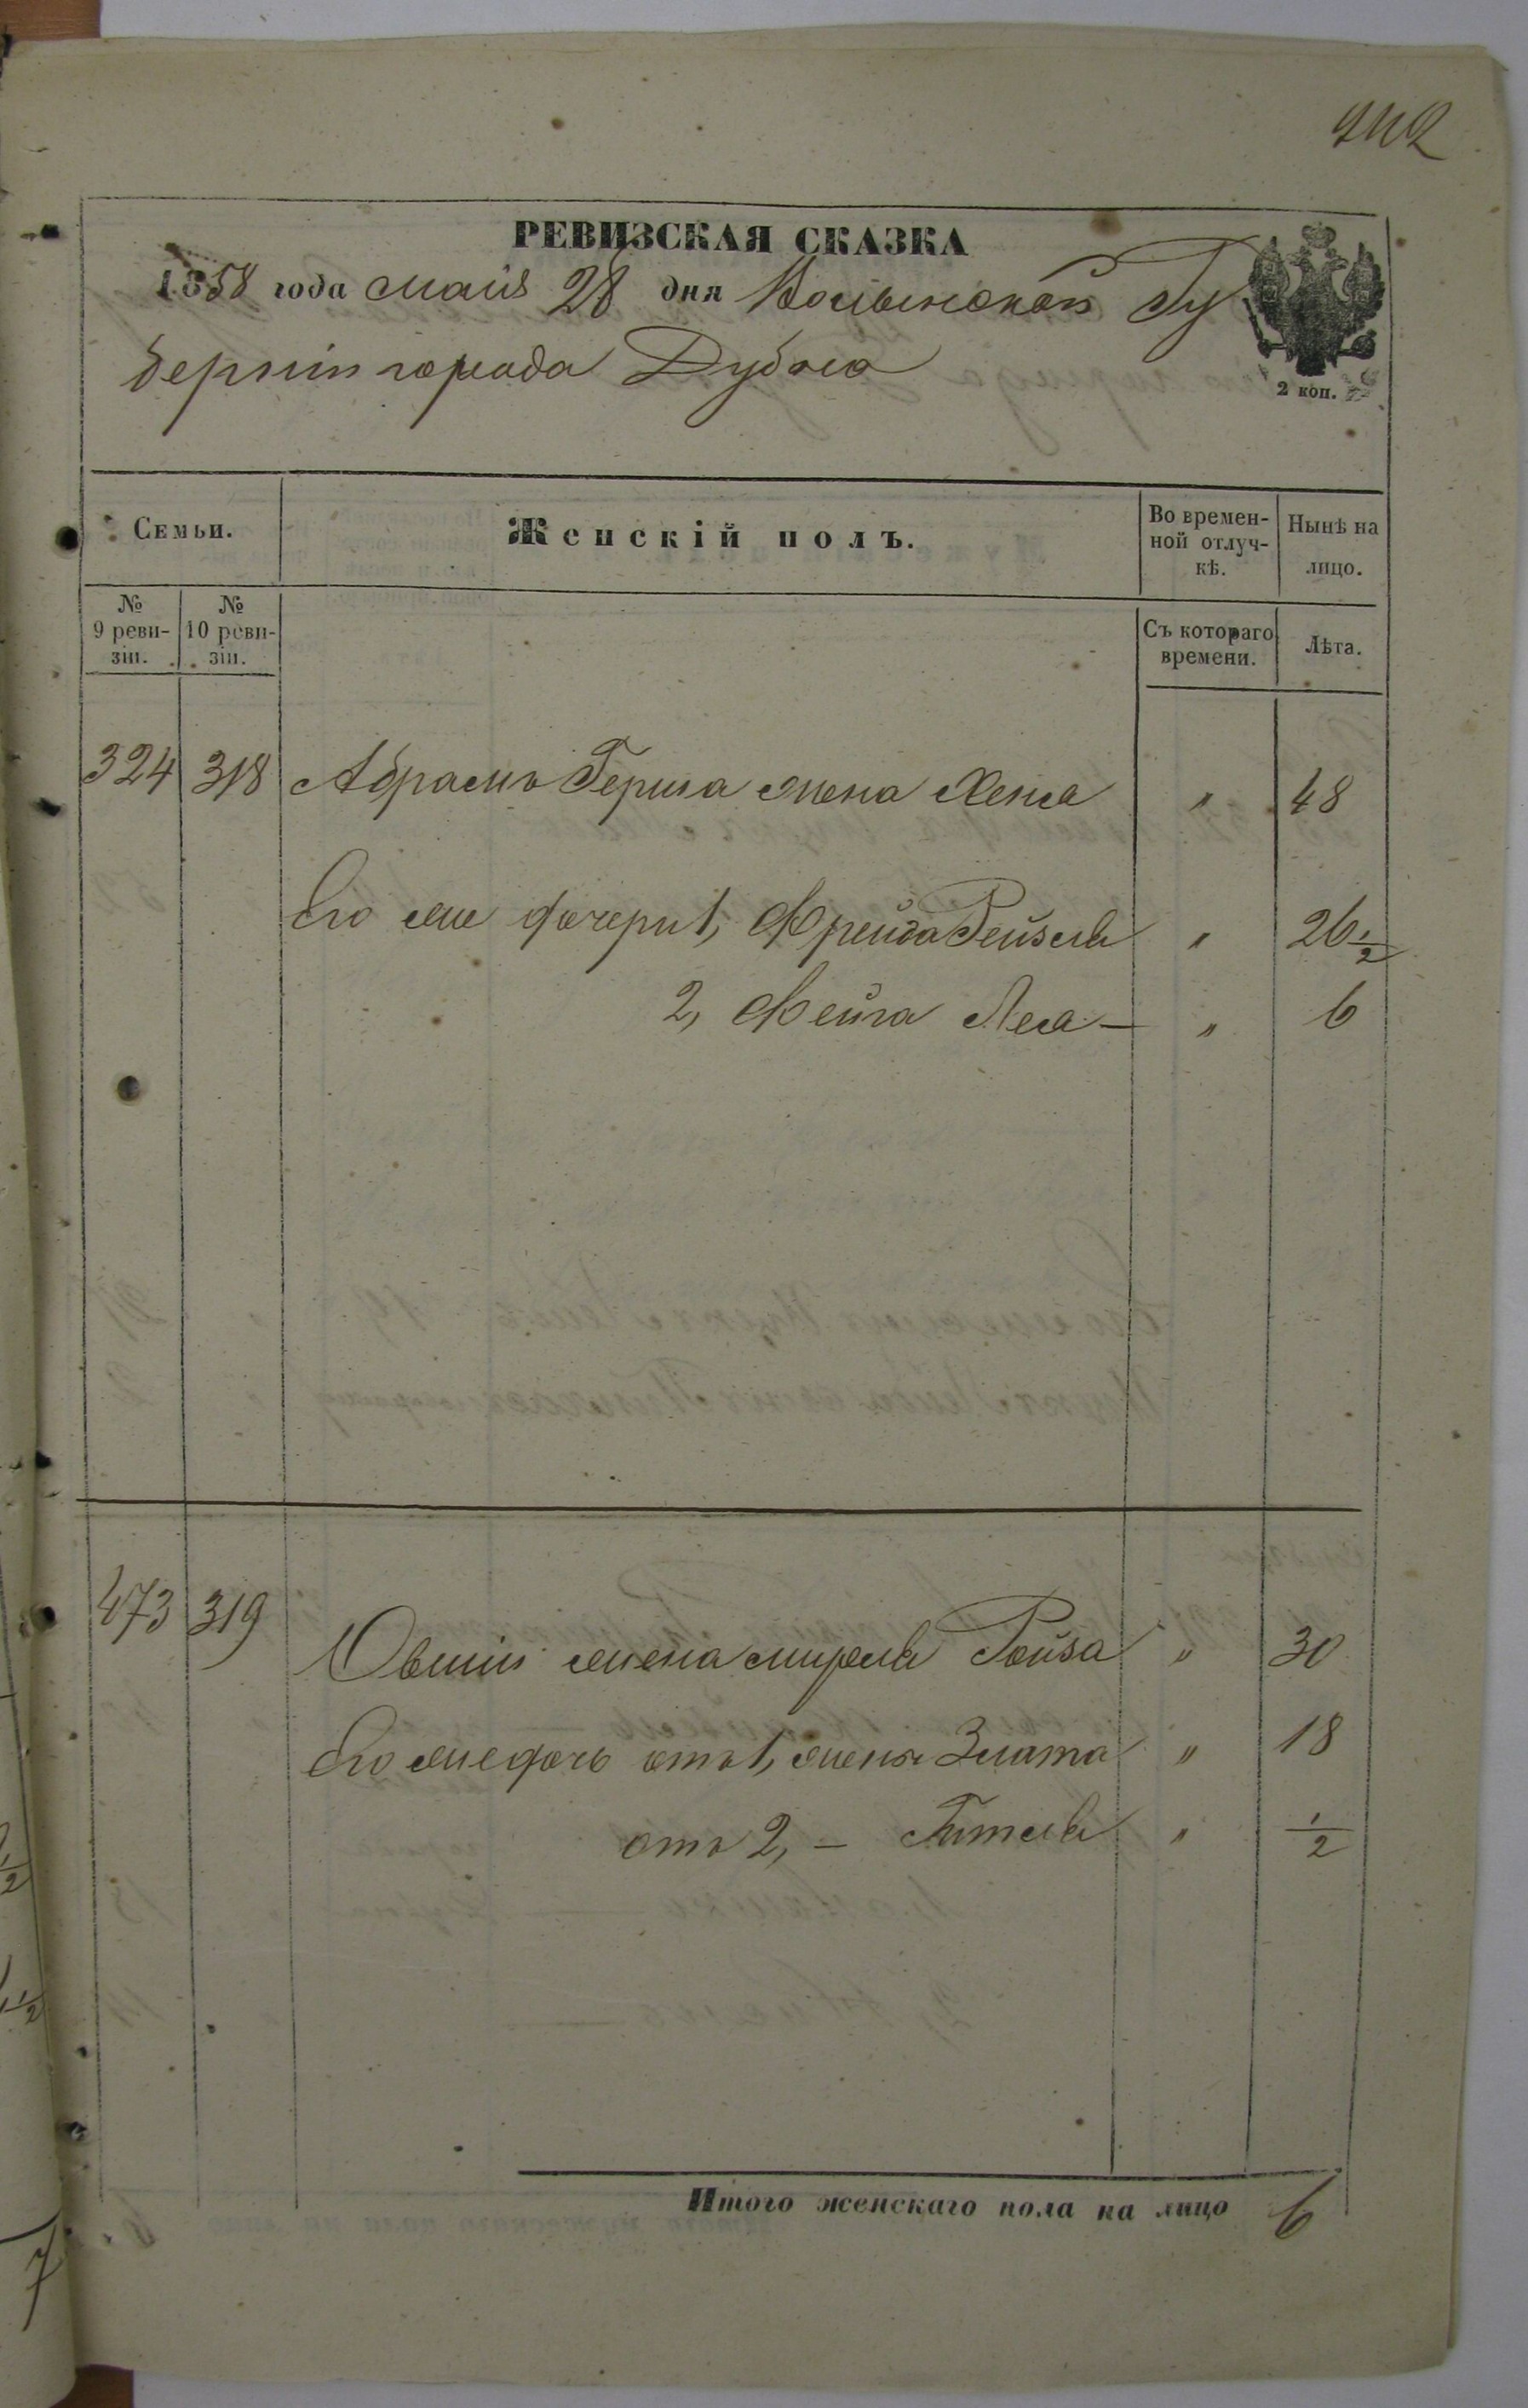 242
РЕВИЗСКАЯ СКАЗКА
1858 года маія 28 дня Волынской Гу
берніи города Дубна
2 коп.
Семьи.
Женскій полъ.
Во времен-
ной отлуч-
кѣ.
Нынѣ на
лицо.
№
9 реви-
зіи.
№
10 реви-
зіи.
Съ котораго
времени.
Лѣта.
324 318 Абрамъ Герша жена Хена " 48
Его же дочери 1, Фрейда Рейзля " 26 1/2
2, Фейга Леа — " 6
473 319 Овшіи жена мирля Ройза " 30
Его же дочь отъ 1, жены Злата " 18
отъ 2, — Гитля " 1/2
Итого женскаго пола на лицо 6
7